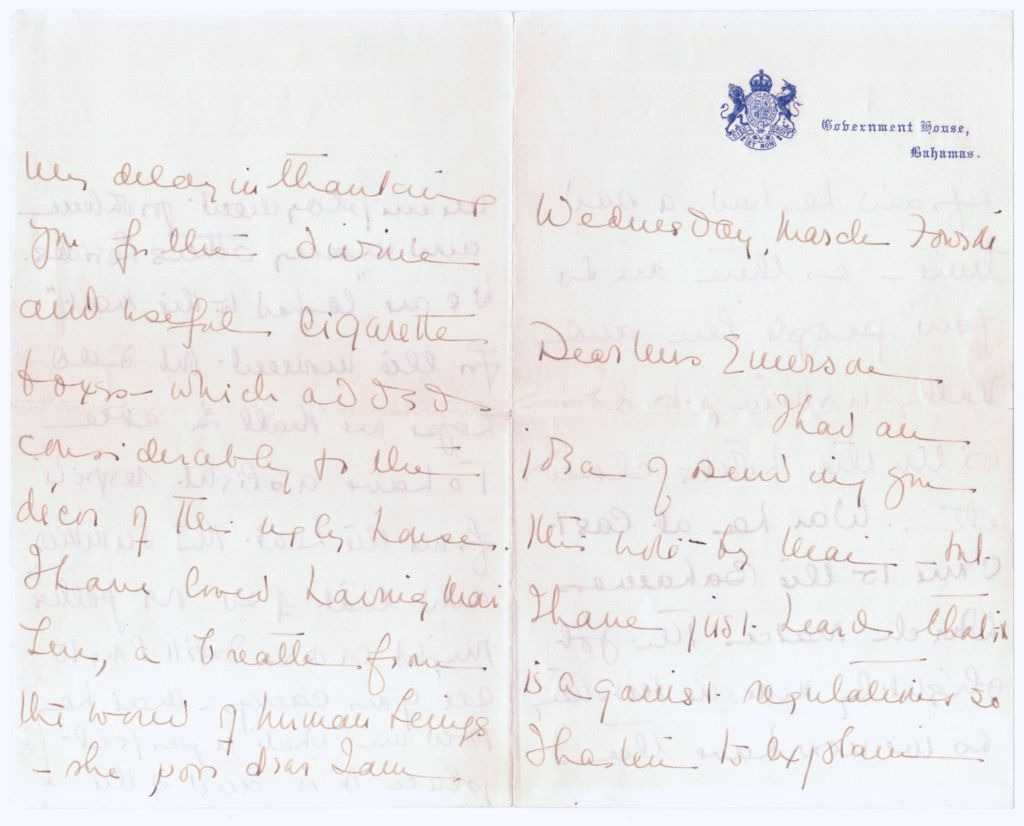 DIEU ET MON DROIT
Government House,
Bahamas.
Wednesday, March Fourth
Dear Mrs Emerson
I had an
idea of sending you
this note by Mai – but
I have just heard that it
is against regulations so
I hasten to explain
my delay in thanking
you for the divine
and useful cigarette
boxes – which added
considerably to the
decor of this ugly house.
I have loved having Mai
here, a breath from
the world of human beings
– she poor dear I am